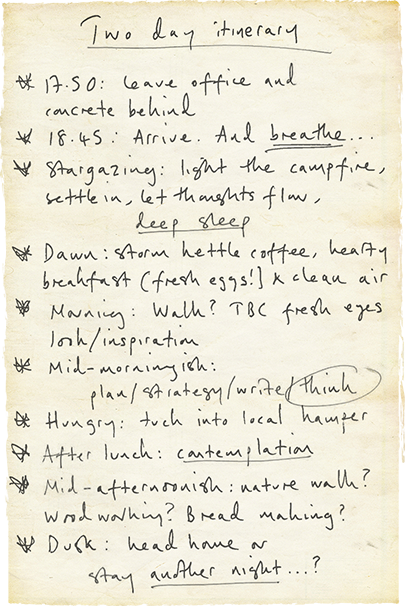 Two day itinerary
* 17.50: Leave office and
concrete behind
* 18.45: Arrive. And breathe...
* Stargazing: light the campfire,
settle in, let thoughts flow,
deep sleep
* Dawn: storm kettle coffee, hearty
breakfast (fresh eggs!) & clean air
* Morning: Walk? TBC fresh eyes
look/inspiration
* Mid-morningish:
plan/strategy/write/think
* Hungry: tuck into local hamper
* After lunch: contemplation
* Mid-afternoonish: nature walk?
Woodworking? Bread making?
* Dusk: head home or
stay another night...?